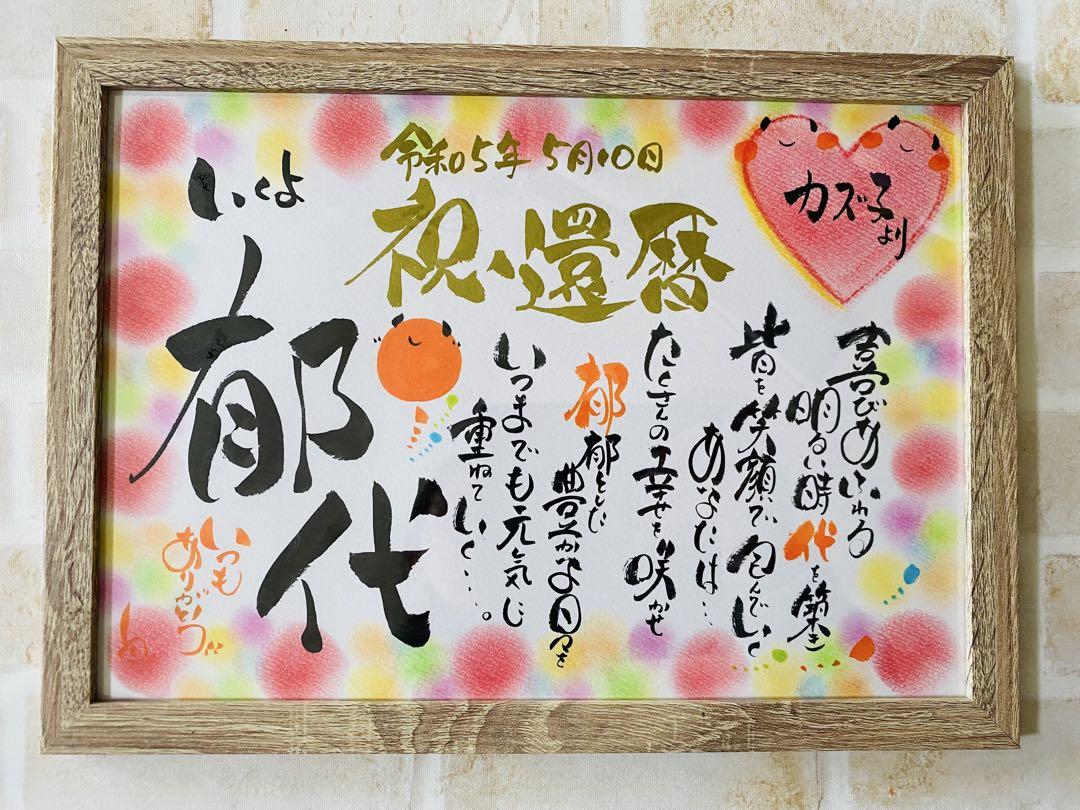 令和5年 5月10日
祝い還暦
カズ子
より
喜びあふれる
明るい時代を築き
皆を笑顔で包んでいく
あなたは…
たくさんの幸せを咲かせ
郁郁とした
豊かな日々を
いつまでも元気に
重ねていく…。
いくよ
郁代
いつも
ありがとう